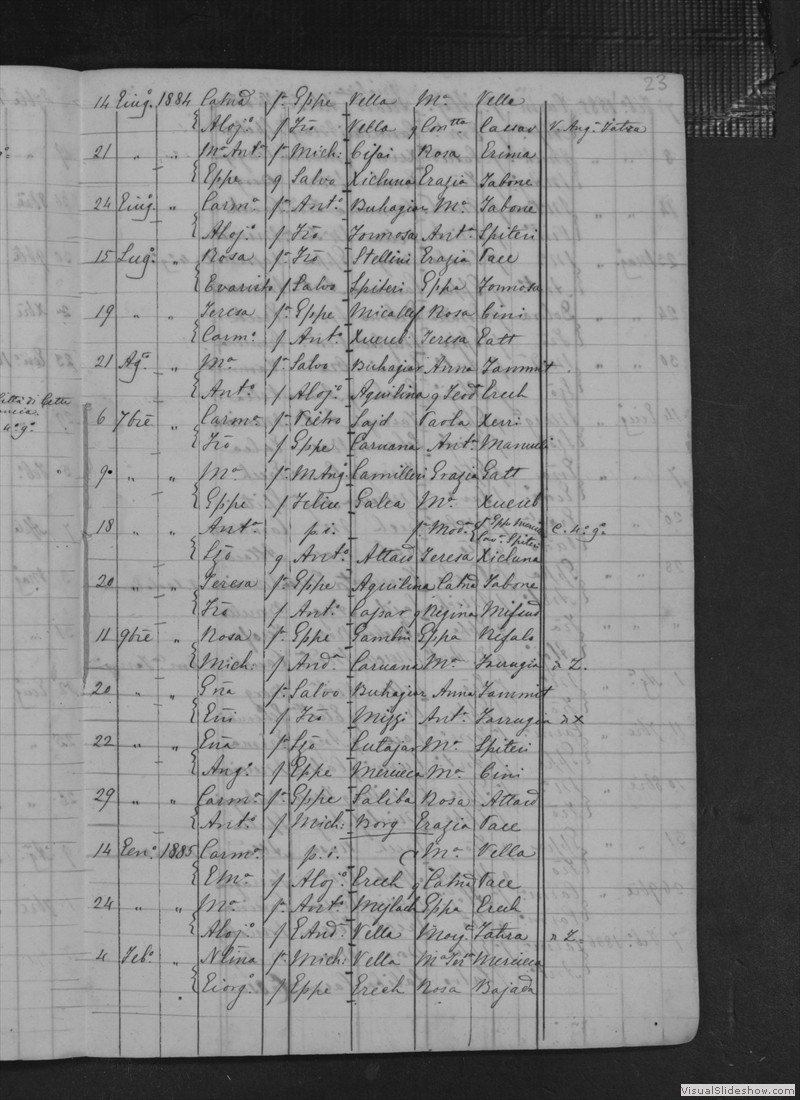 23
14 Eiug.o 1884 Catnã f. Eppe Vella M.a Vella
Aloj.o f Ir̃o Vella g Con.tta Cassar V. Ang.a Tatza
21 " " M.a Ant.a f. Mich: Cifai Rosa Erima
Eppe g Salvo Xicluna Erazia Tabone
24 Eiug. " Carm.a f. Ant.o Buhagiar M.a Tabone
Aloj.o f Ir̃o Formosa Ant.a Spiteri
15 Lug.o " Rosa f. Ir̃o Stellini Erazia Pace
Evaristo f Salvo Spiteri Eppa Formosa
19 " " Teresa f. Eppe Micallef Rosa Cini
Carm.o f Ant.o Xuereb Teresa Gatt
21 Ag.o " M.a f. Salvo Buhagiar Anna Tammit
Ant.o f Aloj.o Aquilina g Teod Erech
6 7bre " Carm.a f. Pietro Sajd Paola Xerri
Ir̃o f Eppe Caruana Ant.a Mamuli
9 " " M.a f. M Ang. Camilleri Grazia Gatt
Eppe f Felice Galea M.a Xuereb
18 " " Ant.a p.i. f. Mod.a C. 4.o g.o
g Ant.o Attard Teresa Xicluna
20 " " Teresa f. Eppe Aquilina Catnã Tabone
Ir̃o f Ant.o Caspar g Regina Mifsud
11 9bre " Rosa f. Eppe Gambin Eppa Refalo
Mich: f And.a Caruana M.a Farrugia
20 " " Gña f. Salvo Buhagiar Anna Tammit
Eñi f Ir̃o Mizzi Ant.a Farrugia
22 " " Eña f. Cutajar M.a Spiteri
Ang.o f Eppe Mercieca M.a Cini
29 " " Carm.a f. Eppe Saliba Rosa Attard
Ant.o f Mich: Borg Erazia Pace
14 Een.o 1885 Carm.a p.i. M.a Vella
E M.a f Aloj.o Erech g Catnã Pace
24 " " M.a f. Ant.o Mejlach Eppa Erech
Aloj.o f E And. Vella Marg.a Tatza
4 Feb.o " Nlina f. Mich: Vella M.a Ter.a Mercieca
Eiorg.o f Eppe Erech Rosa Bajada
VisualSlideshow.com